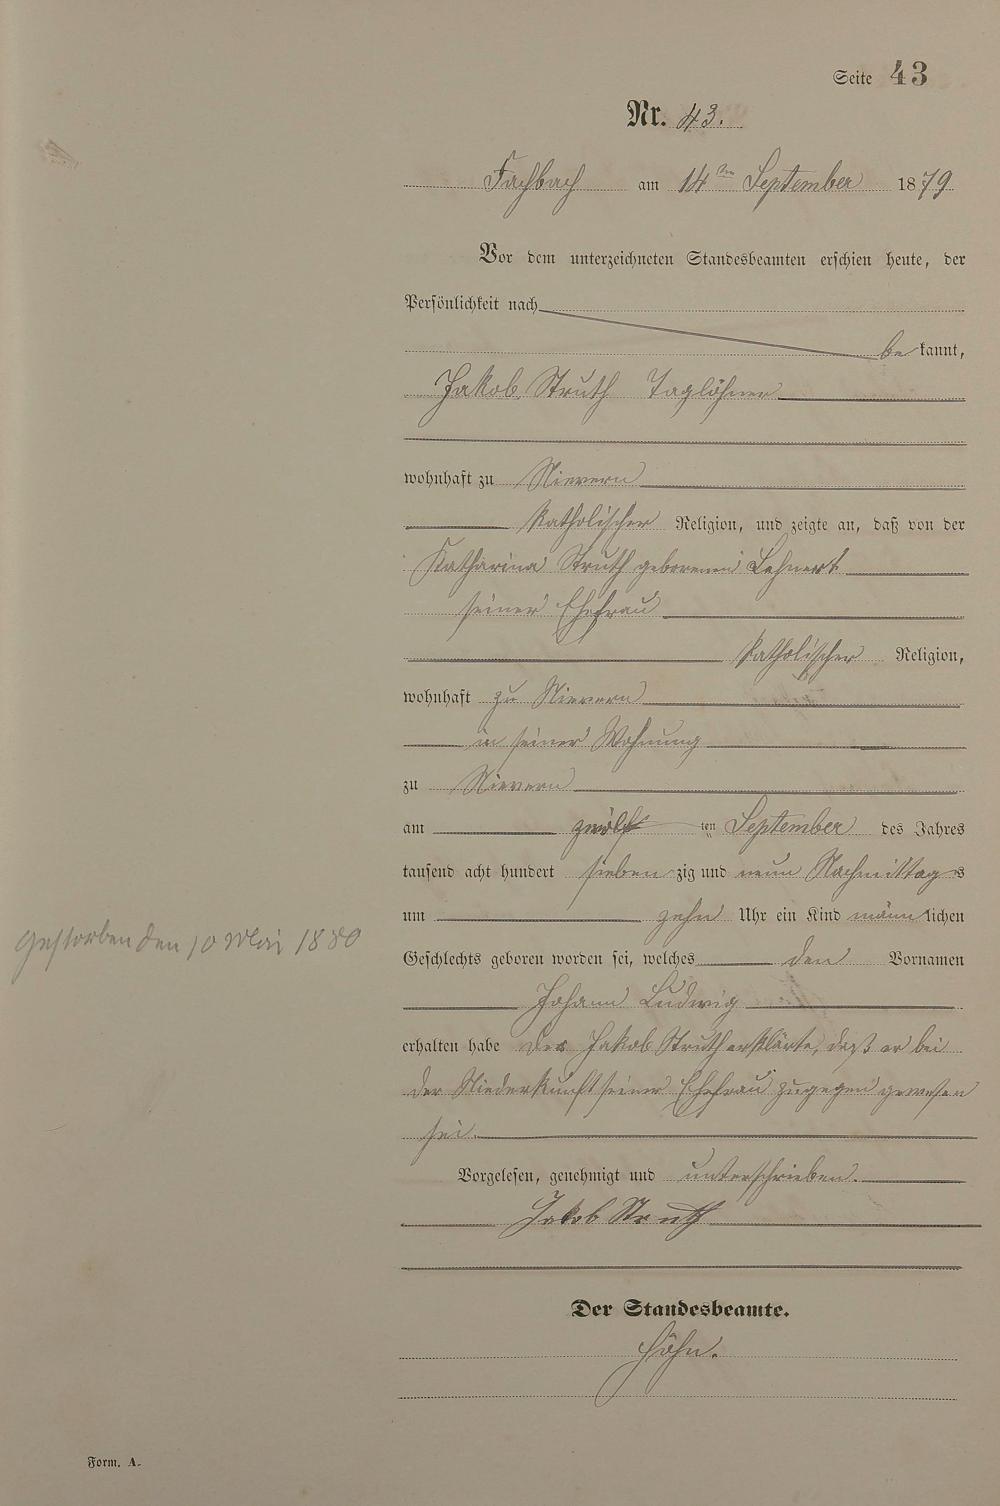 Seite 43
Nr. 43.
Fachbach am 14ten September 1879
Vor dem unterzeichneten Standesbeamten erschien heute, der
Persönlichkeit nach
be kannt,
Jakob Struth Taglöhner
wohnhaft zu Nievern
katholischer Religion, und zeigte an, daß von der
Katharina Struth geborenen Lehnert
seiner Ehefrau
katholischer Religion,
wohnhaft zu Nievern
in seiner Wohnung
zu Nievern
am zwölf ten September des Jahres
tausend acht hundert sieben zig und neun Nachmittags
um zehn Uhr ein Kind männ lichen
Geschlechts geboren worden sei, welches den Vornamen
Gestorben den 10 Mai 1880
Johann Ludwig
erhalten habe Der Jakob Struth erklärte, daß er bei
der Niederkunft seiner Ehefrau zugegen gewesen
sei.
Vorgelesen, genehmigt und unterschrieben.
Jakob Struth
Der Standesbeamte.
Höhn.
Form. A.